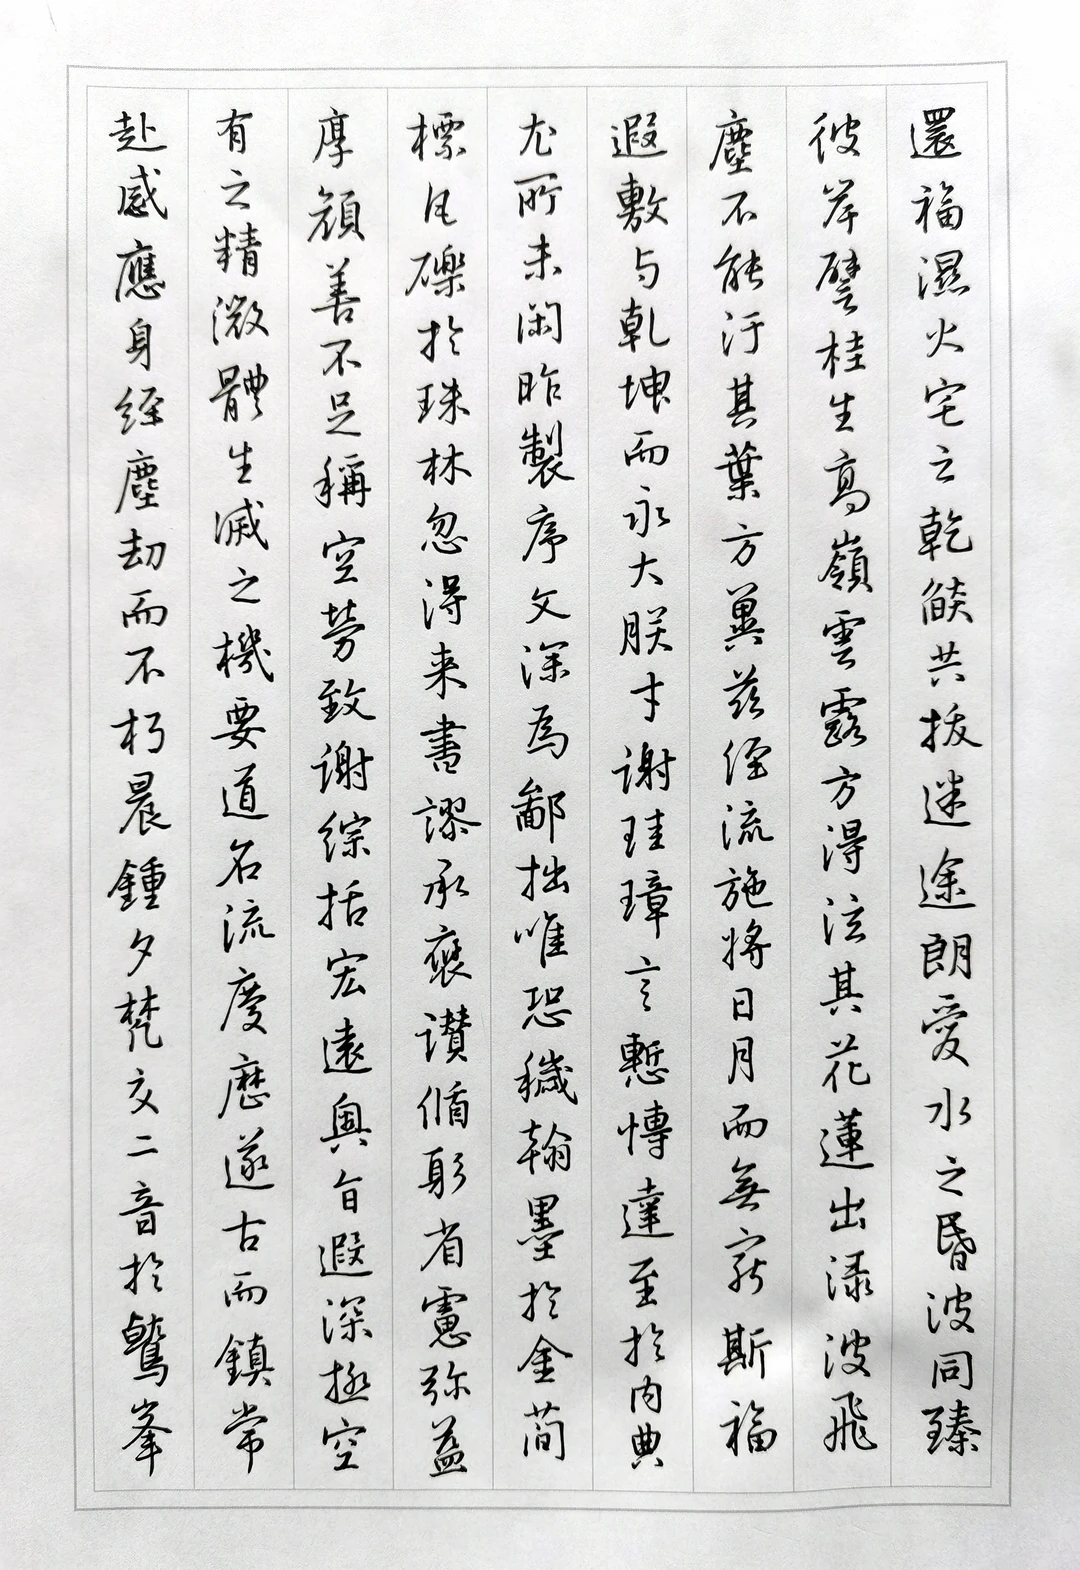 還福濕火宅之乾燄共拔迷途朗愛水之昏波同臻
彼岸譬桂生高嶺雲露方得泫其花蓮出渌波飛
塵不能汙其葉方冀茲經流施將日月而無窮斯福
遐敷与乾坤而永大朕才謝珪璋言慙博達至於内典
尤所未闲昨製序文深為鄙拙唯恐穢翰墨於金简
標瓦礫於珠林忽得来書謬承褒讃循躬省慮弥益
厚顔善不足稱空勞致謝綜括宏遠奥旨遐深極空
有之精微體生滅之機要道名流慶歷遂古而鎮常
赴感應身經塵劫而不朽晨鍾夕梵交二音於鷲峯